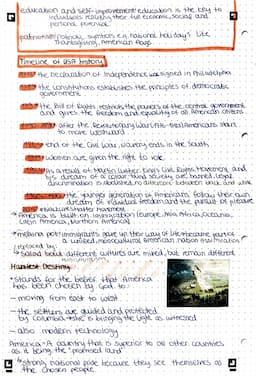 education and self-improvement: education is the key to
individuals realizing their full economic, social and
personal potential
patriotism: national symbols e.g. national holidays like
Thanksgiving, American flags
Timeline of USA history
the Declaration of Independence was signed in Philadelphia
the constitutions establishes the principles of democratic
government
the Bill of Rights restricts the powers of the central government
and gives the freedom and equality of all American citizens
after the Revolutionary War (
Americans start
to move westward
end of the Civil War, slavery ends in the South
Women are given the right to vote
As a result of Martin Luther King's Civil Rights Movement and
his dream of a
society
legal
discrimination is abolished, no difference between black and white
the younger generation of Americans follow their own
dream of individual freedom and the pursuit of pleasure
Black Lives Matter Movement
America is built on immigration (Europe, Asia, Africa, Oceania,
Latin America, Northern America)
melting pot: immigrants gave up their way of life, became part of
a unified, monocultural American nation (assimilation)
replaced by:
Salad bowl: different cultures are mixed, but remain different
Manifest Destiny
stands for the belief that America
has been chosen by God to:
- moving from east to west
- the settlers are guided and protected
by Columbia → she is bringing the light as
- also modern technology
America: A country that is superior to all other countries
as it being the "promised land"
strong national pride because they see themselves as
the chosen people